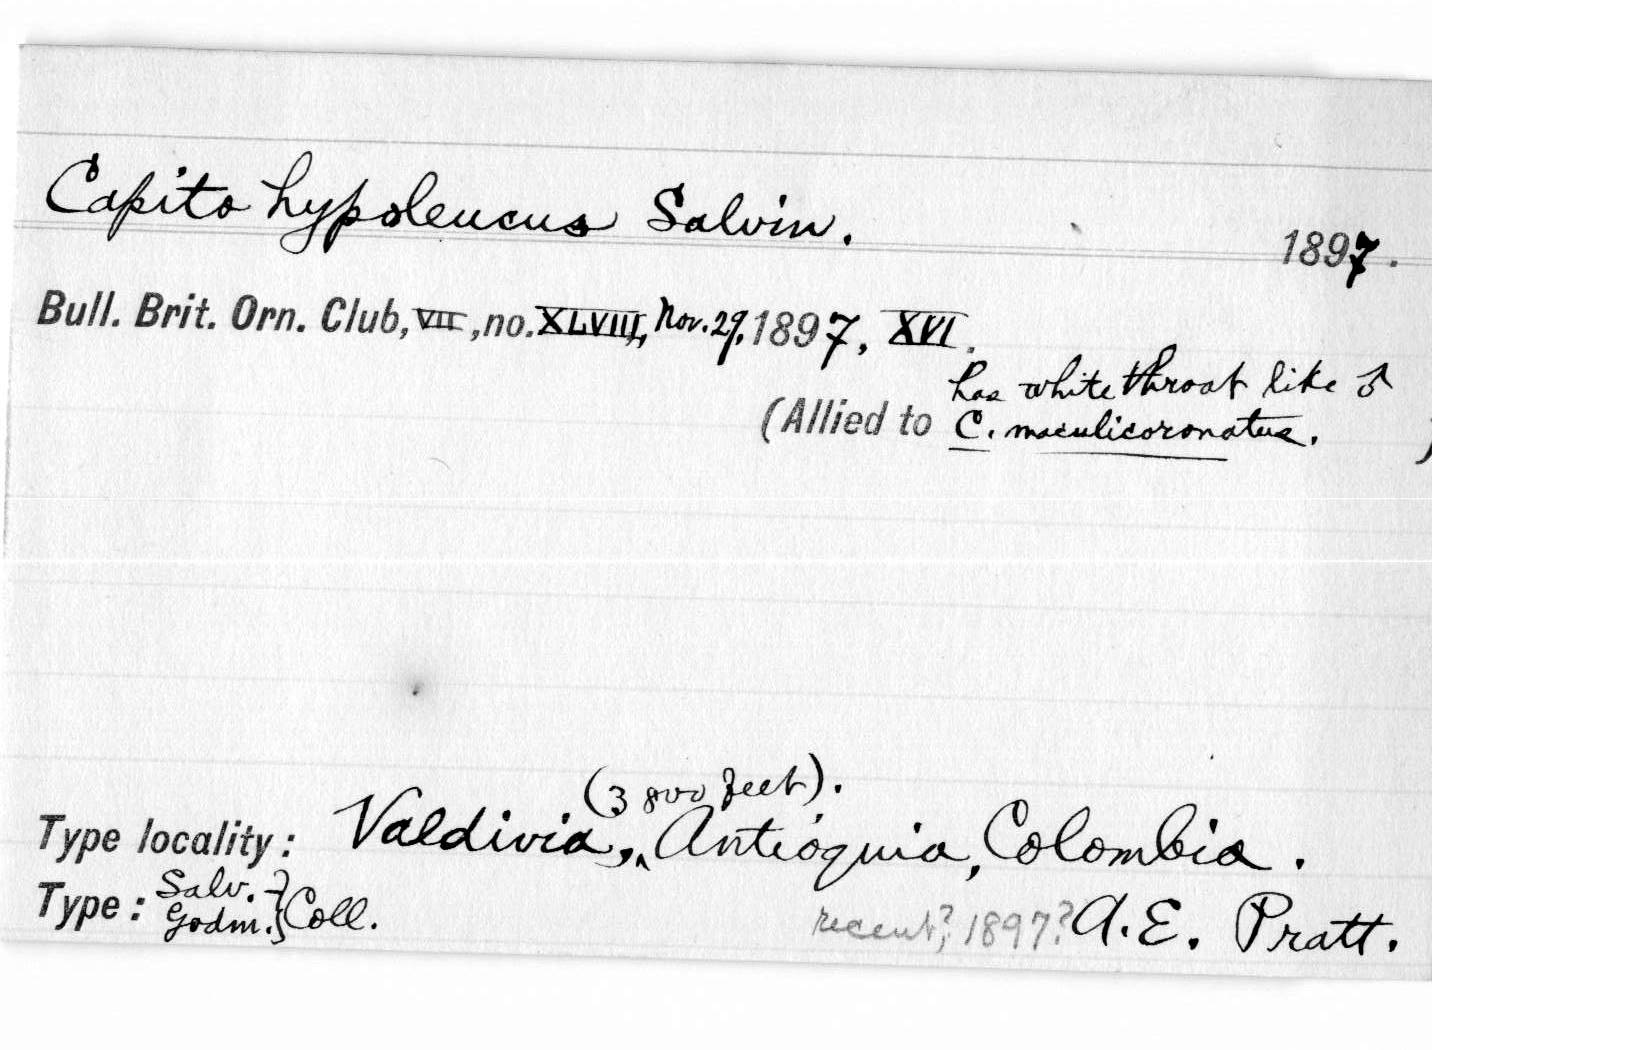 Capito hypoleucus Salvin.
1897.
Bull. Brit. Orn. Club, VII, no. XLVIII, Nov. 29, 1897, XVI.
has white throat like ♂
(Allied to C. maculicoronatus. )
(3800 feet).
Type locality: Valdivia, Antioquia, Colombia.
Type: Salv. } Coll.
Godm. }
recent? 1897? A. E. Pratt.